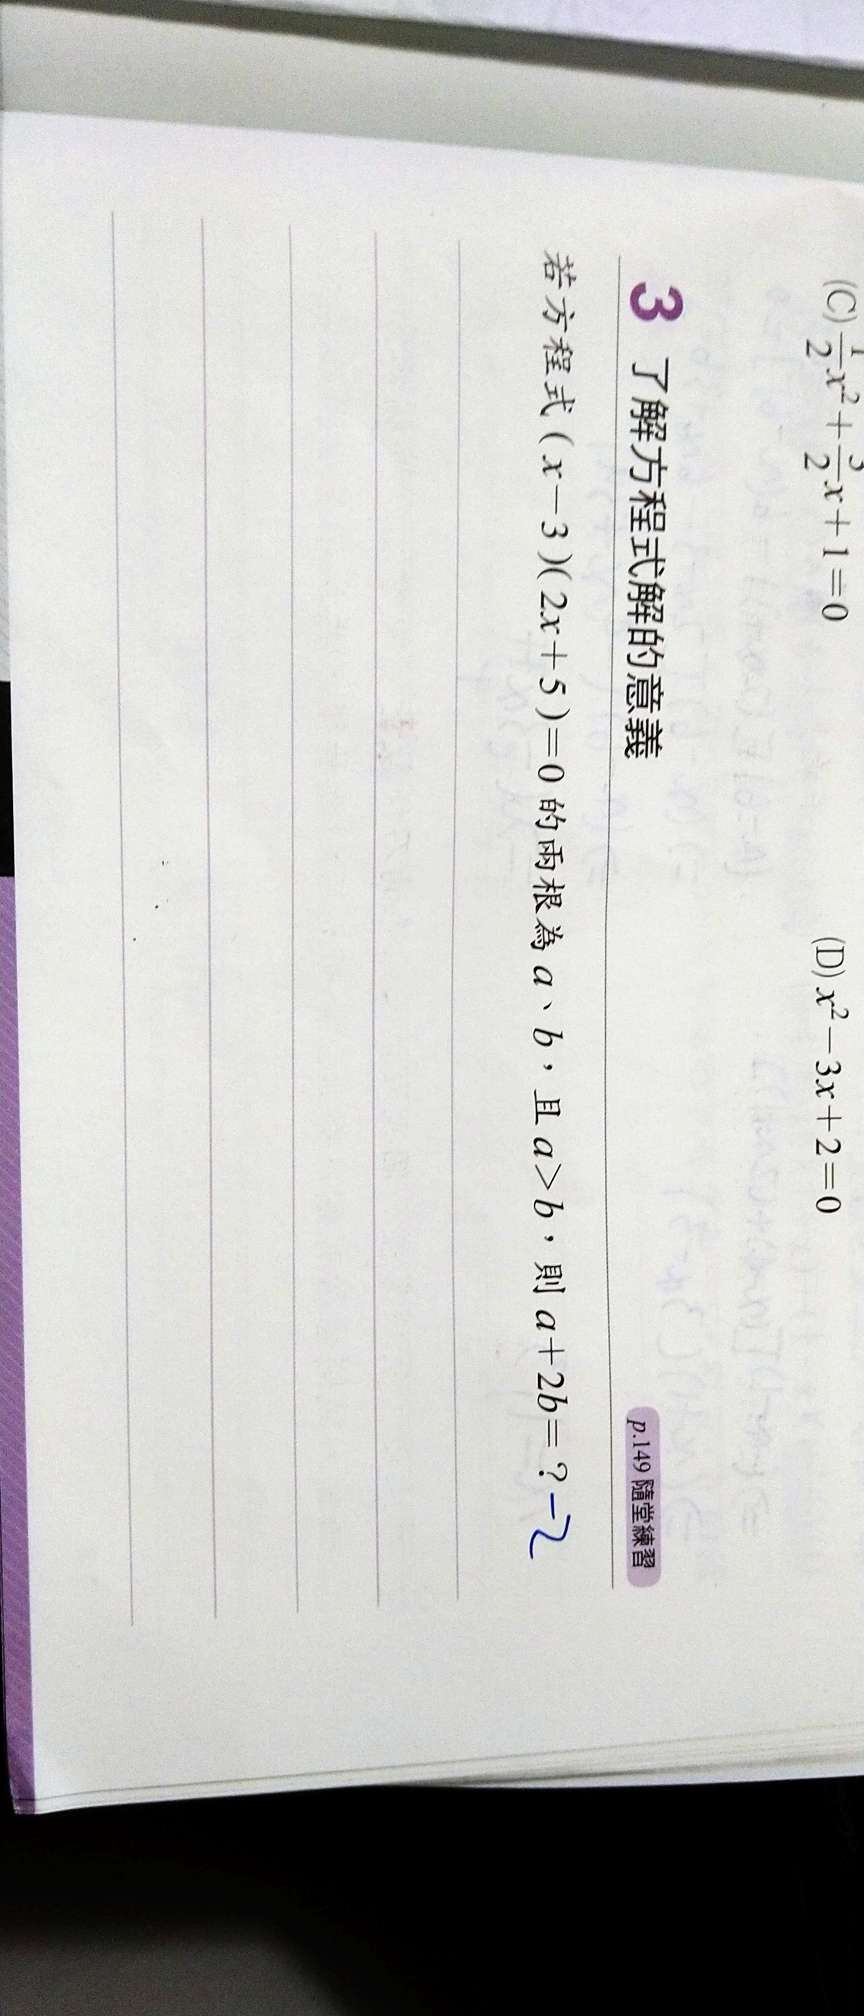 (C) 1/2x²+3/2x+1=0
(D) x²−3x+2=0
3 了解方程式解的意義
p.149 隨堂練習
若方程式(x−3)(2x+5)=0的兩根為a、b，且a>b，則a+2b=？ −2